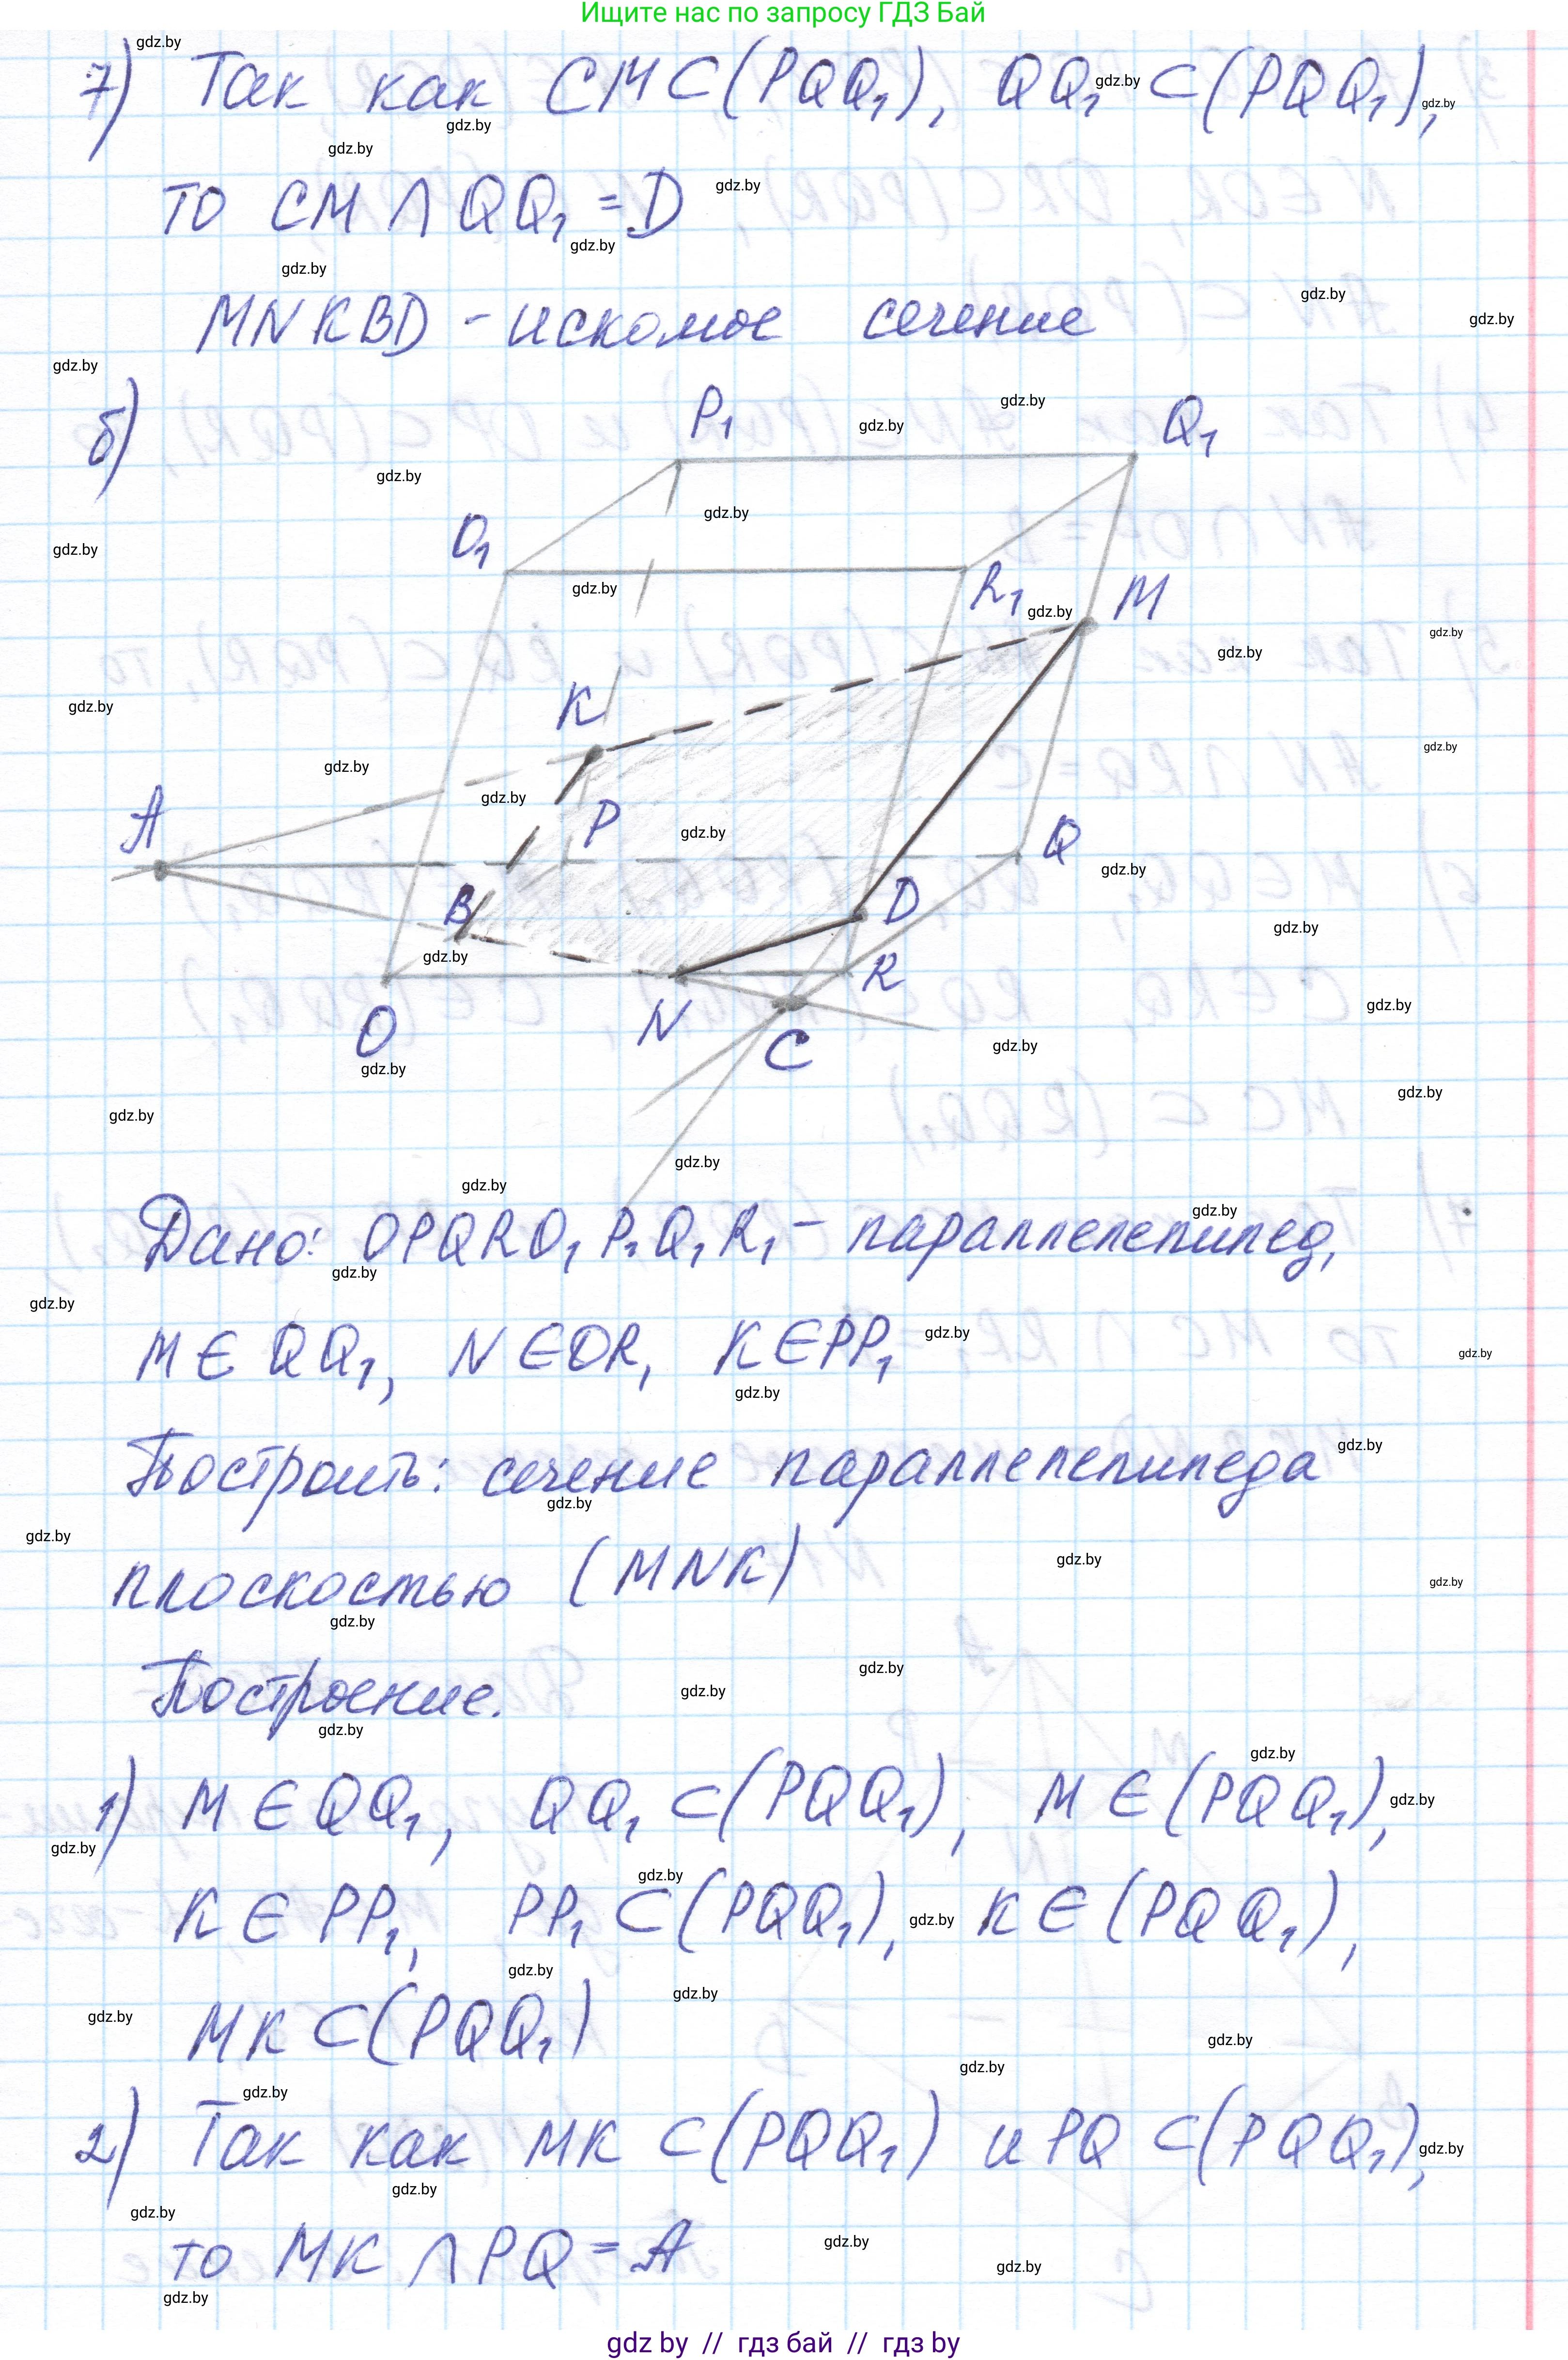 Ищите нас по запросу ГДЗ Бай
7) Так как CM⊂(PQQ₁), QQ₁⊂(PQQ₁),
то CM ∩ QQ₁ = D
MNKBD - искомое сечение
б)
P₁
Q₁
O₁
R₁
M
K
A
P
Q
B
D
R
O
N
C
Дано: OPQRO₁P₁Q₁R₁ - параллелепипед,
M∈QQ₁, N∈OR, K∈PP₁
Построить: сечение параллелепипеда
плоскостью (MNK)
Построение.
1) M∈QQ₁, QQ₁⊂(PQQ₁), M∈(PQQ₁),
K∈PP₁, PP₁⊂(PQQ₁), K∈(PQQ₁),
MK⊂(PQQ₁)
2) Так как MK⊂(PQQ₁) и PQ⊂(PQQ₁),
то MK ∩ PQ = A
gdz by // гдз бай // гдз by